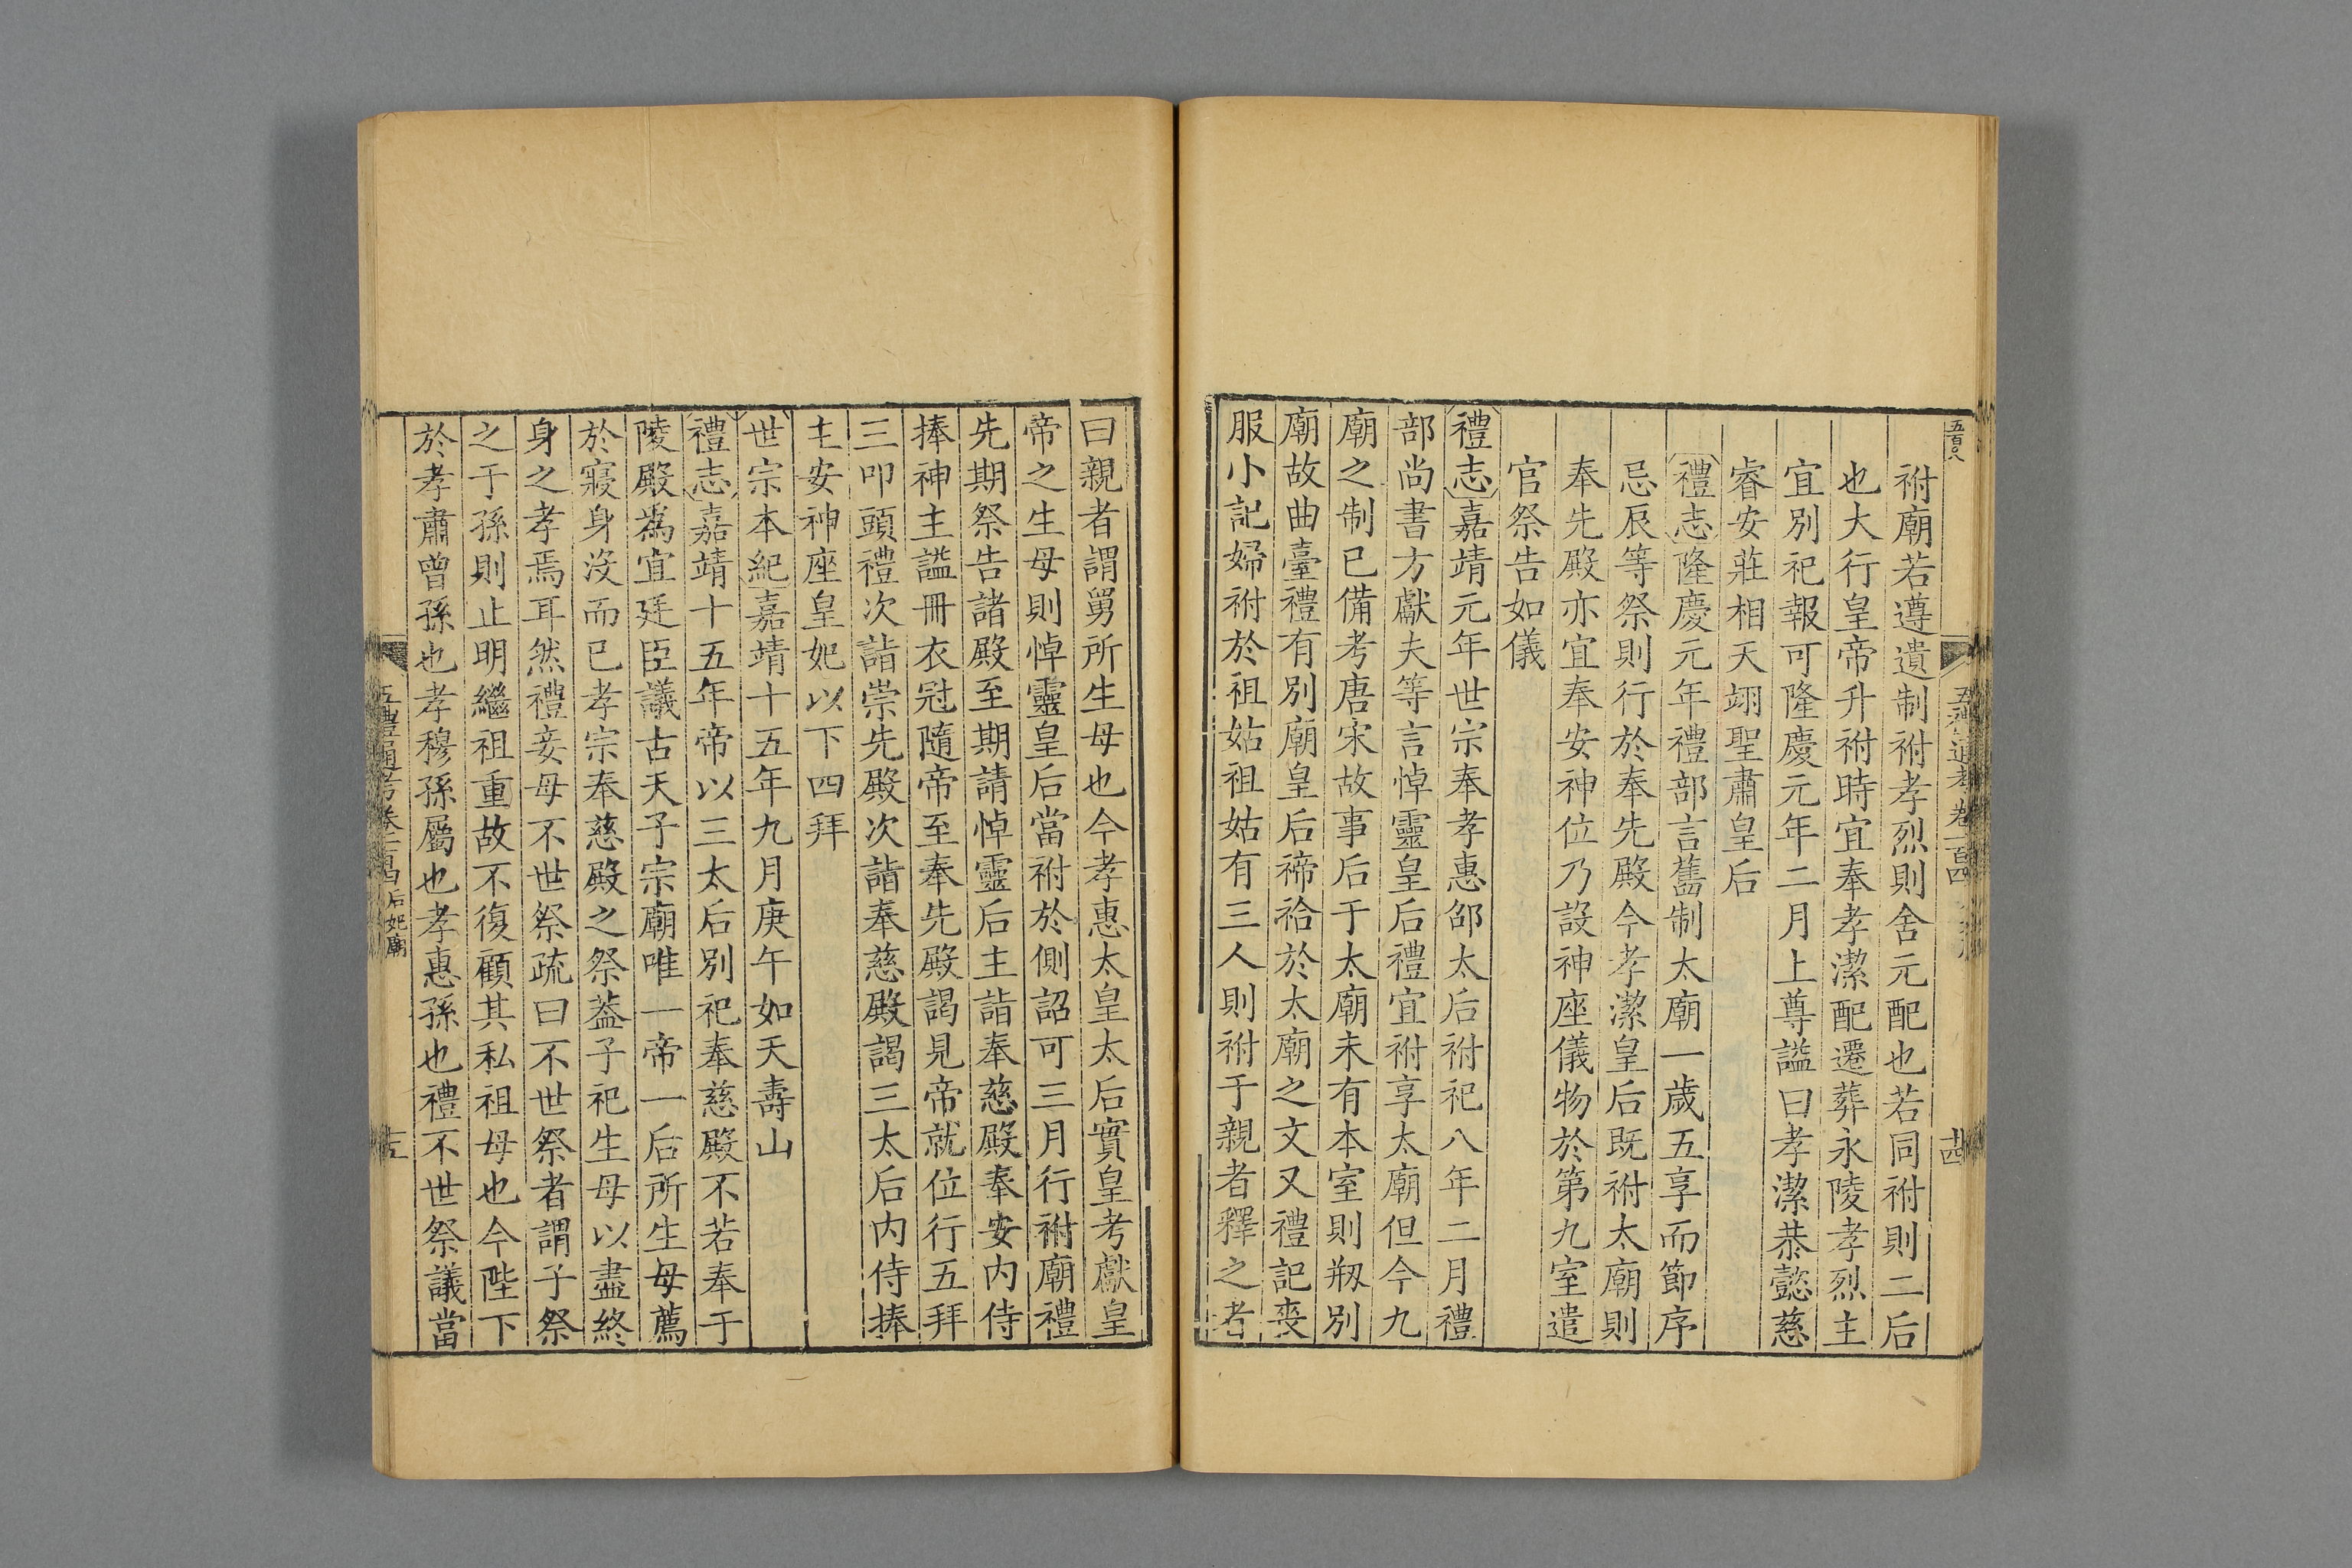 五百八
五禮通考卷一百四
十四
祔廟若遵遺制祔孝烈則舍元配也若同祔則二后
也大行皇帝升祔時宜奉孝潔配遷葬永陵孝烈主
宜別祀報可隆慶元年二月上尊諡曰孝潔恭懿慈
睿安莊相天翊聖肅皇后
禮志隆慶元年禮部言舊制太廟一歲五享而節序
忌辰等祭則行於奉先殿今孝潔皇后既祔太廟則
奉先殿亦宜奉安神位乃設神座儀物於第九室遣
官祭告如儀
禮志嘉靖元年世宗奉孝惠邵太后祔祀八年二月禮
部尚書方獻夫等言悼靈皇后禮宜祔享太廟但今九
廟之制已備考唐宋故事后于太廟未有本室則剏別
廟故曲臺禮有別廟皇后禘祫於太廟之文又禮記喪
服小記婦祔於祖姑祖姑有三人則祔于親者釋之者
曰親者謂舅所生母也今孝惠太皇太后實皇考獻皇
帝之生母則悼靈皇后當祔於側詔可三月行祔廟禮
先期祭告諸殿至期請悼靈后主詣奉慈殿奉安內侍
捧神主謚冊衣冠隨帝至奉先殿謁見帝就位行五拜
三叩頭禮次詣崇先殿次詣奉慈殿謁三太后內侍捧
主安神座皇妃以下四拜
世宗本紀嘉靖十五年九月庚午如天壽山
禮志嘉靖十五年帝以三太后別祀奉慈殿不若奉于
陵殿為宜廷臣議古天子宗廟唯一帝一后所生母薦
於寢身沒而已孝宗奉慈殿之祭葢子祀生母以盡終
身之孝焉耳然禮妾母不世祭疏曰不世祭者謂子祭
之于孫則止明繼祖重故不復顧其私祖母也今陛下
於孝肅曾孫也孝穆孫屬也孝惠孫也禮不世祭議當
五禮通考卷一百四 后妃廟
十五